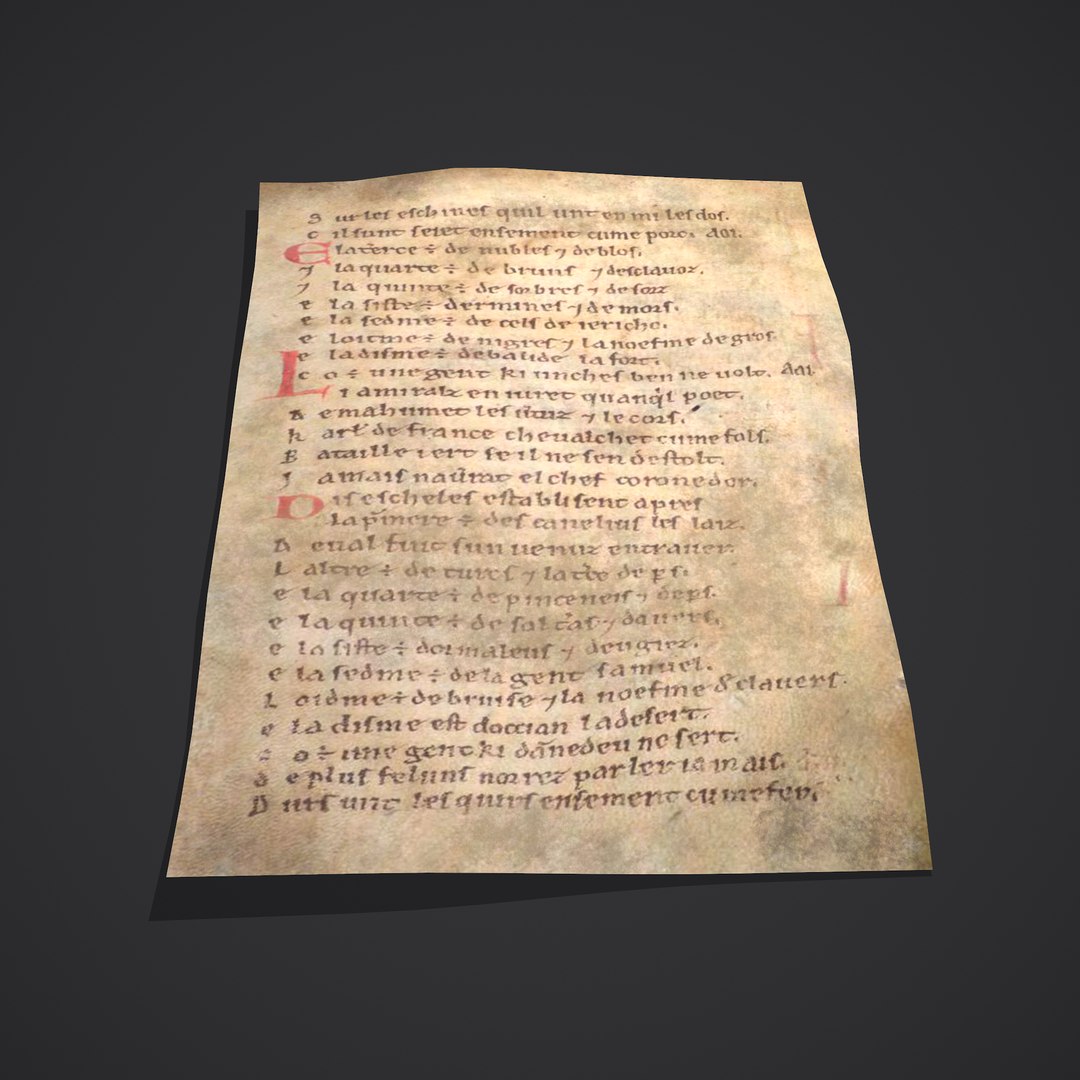 S ur les eschines quil unt en mi les dos.
C il sunt seiet ensement cume porc. Aoi.
E la terce ÷ de nubles ⁊ de blos.
⁊ la quarte ÷ de bruns ⁊ desclauoz.
⁊ la quinte ÷ de sorbres ⁊ de sorz
e la siste ÷ dermines ⁊ de mors.
e la sedme ÷ de cels de iericho.
e loitme ÷ de nigres ⁊ la noefme de gros.
e la disme ÷ de balide la fort.
c o ÷ une gent ki unches ben ne uolt. Aoi.
L i amiralz en iuret quanql poet.
D e mahumet les uertuz ⁊ le cors.
k arł de france cheualchet cume fols.
B ataille iert se il ne sen destolt.
J amais naurat el chef corone dor.
D is escheles establisent apres
la pmere ÷ des canelius les laiz.
D e ual fuit sun uenuz en trauer.
L altre ÷ de turcs ⁊ la tce de ps.
e la quarte ÷ de pinceneis ⁊ de ps.
e la quinte ÷ de soltras ⁊ dauers.
e la siste ÷ dormaleus ⁊ deugiez.
e la sedme ÷ de la gent samuel.
L oidme ÷ de bruise ⁊ la noefme de clauers.
e la disme est doccian la desert.
c o ÷ une gent ki danedeu ne sert.
d e plus feluns norrez parler iamais.
D urs unt les quirs ensement cume fer.